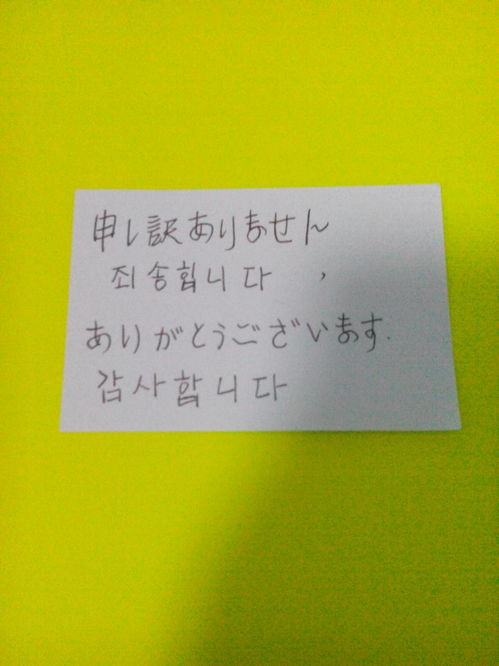 申し訳ありません
죄송합니다 ,
ありがとうございます.
감사합니다